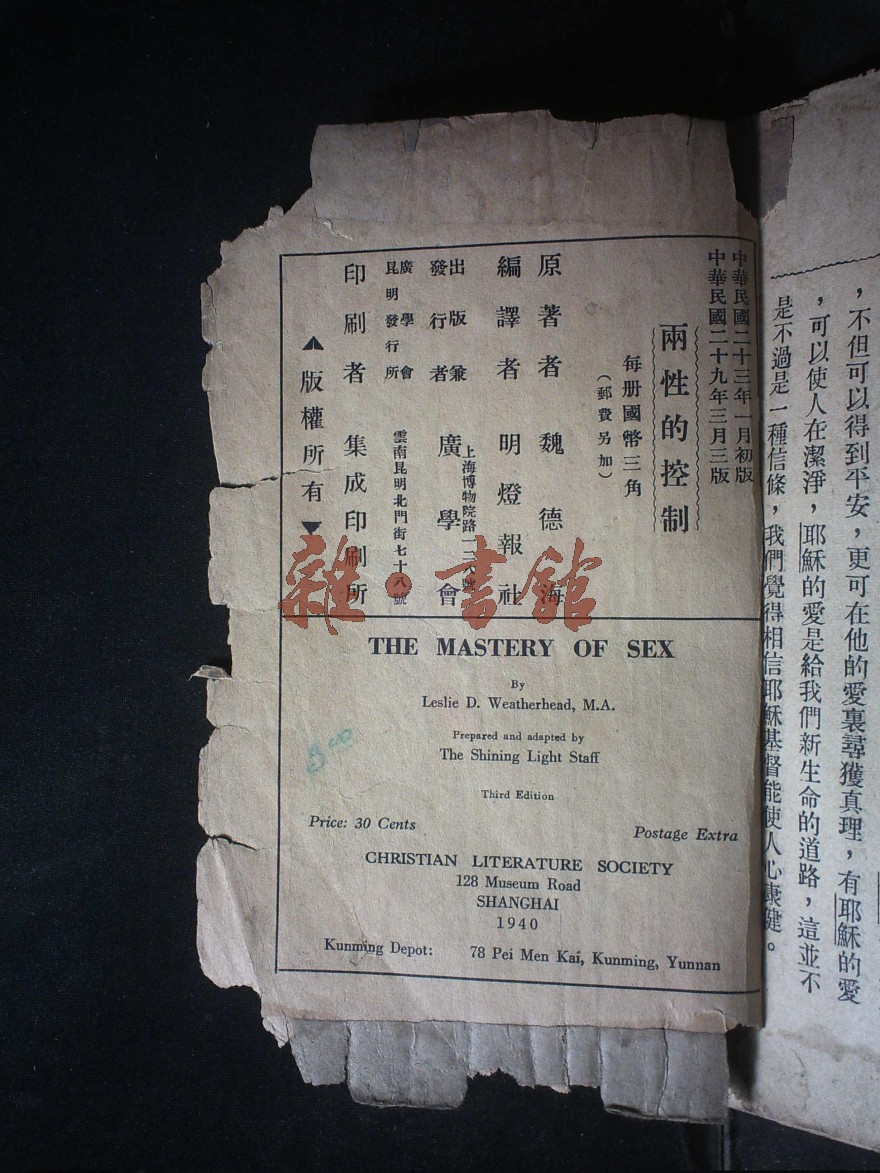 ，不但可以得到平安，更可在他的愛裏尋獲真理，有耶穌的愛
，可以使人在潔淨，耶穌的愛是給我們新生命的道路，這並不
是不過是一種信條，我們覺得相信耶穌基督能使人心康健。
中華民國二十三年一月初版
中華民國二十九年三月三版
兩性的控制
每册國幣三角
（郵費另加）
原著者 魏德海
編譯者 明燈報社
出版兼發行者 廣學會
上海博物院路一二八號
廣學會昆明發行所
雲南昆明北門街七十八號
印刷者 集成印刷所
▲版權所有▼
雜·書館
THE MASTERY OF SEX
By
Leslie D. Weatherhead, M.A.
Prepared and adapted by
The Shining Light Staff
Third Edition
Price: 30 Cents Postage Extra
CHRISTIAN LITERATURE SOCIETY
128 Museum Road
SHANGHAI
1940
Kunming Depot: 78 Pei Men Kai, Kunming, Yunnan